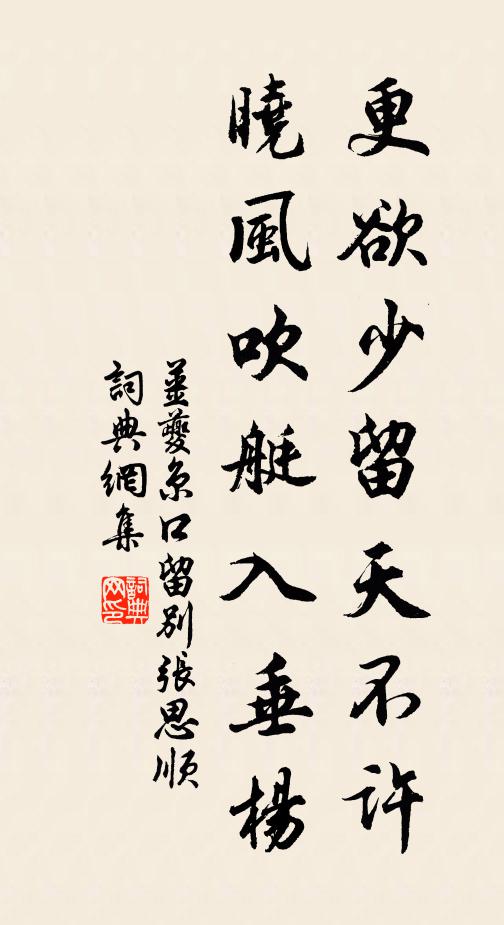 更欲少留天不許
曉風吹艇入垂楊
姜夔京口留別張思順
詞典網集
詞典網印